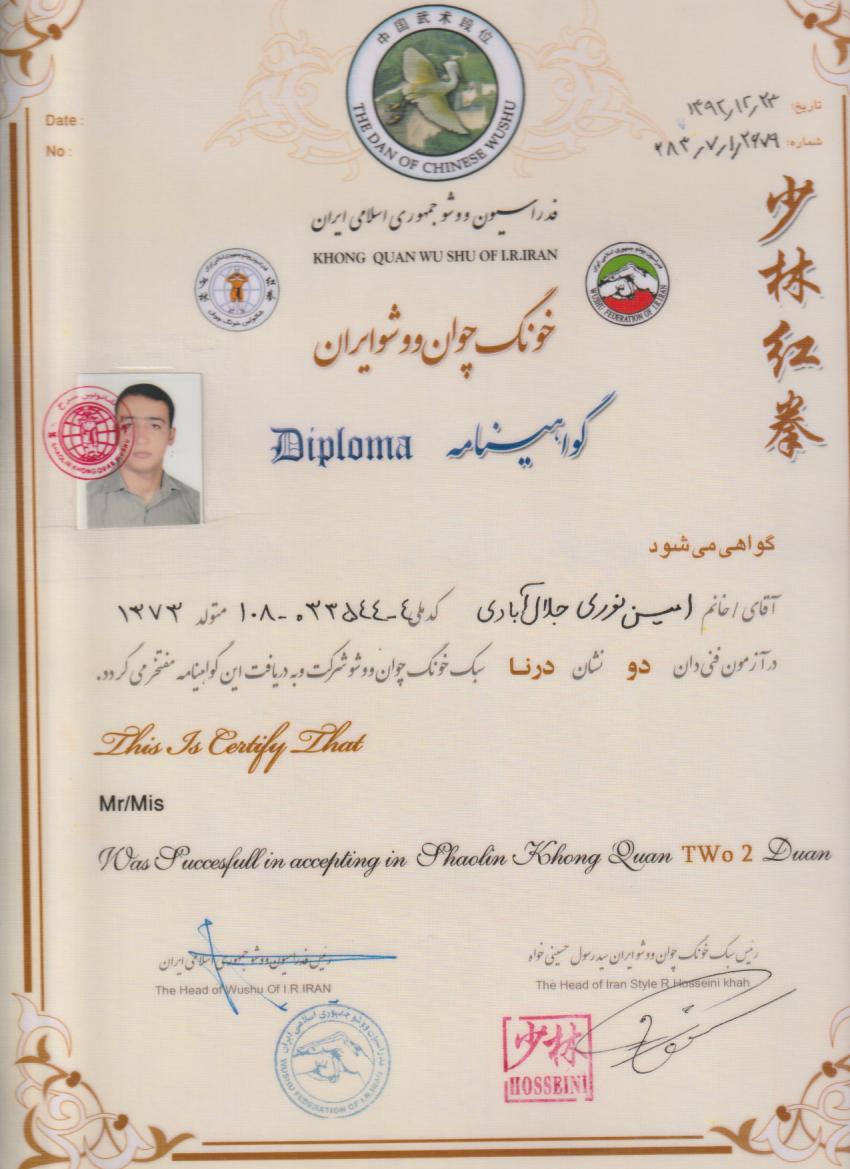 中国武术段位
THE DAN OF CHINESE WUSHU
Date :
تاریخ: ۱۳۹۲,۱۲,۲۳
No :
شماره: ۲۸۳,۷,۱,۲۶۷۹
少林红拳
فدراسیون ووشو جمهوری اسلامی ایران
KHONG QUAN WU SHU OF I.R.IRAN
WUSHU FEDERATION OF I.R.IRAN
خونگ چوان ووشو ایران
Diploma گواهینامه
گواهی می شود
آقای / خانم امین نوری جلال آبادی کد ملی ۱۰۸-۰۳۳۵۴۴-۴ متولد ۱۳۷۳
در آزمون فنی دان دو نشان درنا سبک خونگ چوان ووشو شرکت و به دریافت این گواهینامه مفتخر می گردد.
This Is Certify That
Mr/Mis
Was Succesfull in accepting in Shaolin Khong Quan TWo 2 Duan
رئیس فدراسیون ووشو جمهوری اسلامی ایران
رئیس سبک خونگ چوان ووشو ایران سید رسول حسینی خواه
The Head of Wushu Of I.R.IRAN
The Head of Iran Style R.Hosseini khah
فدراسیون ووشو جمهوری اسلامی ایران
WUSHU FEDERATION OF I.R.IRAN
少林
HOSSEINI